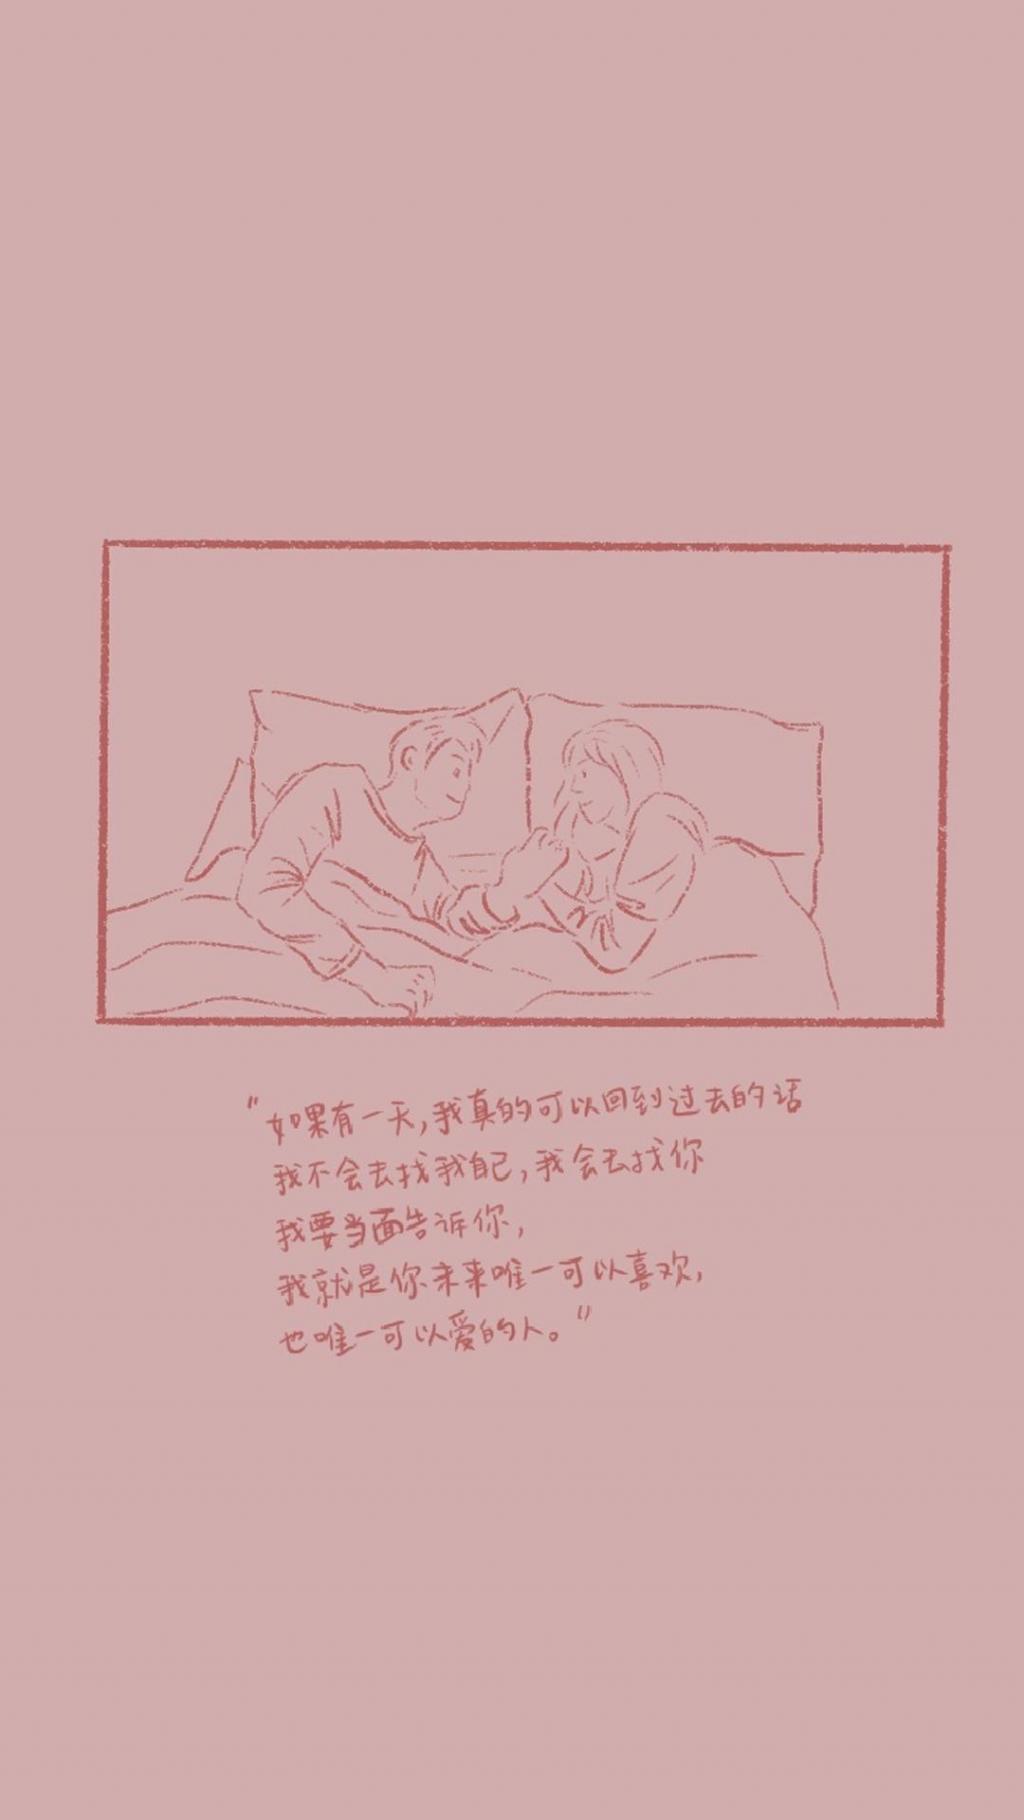 "如果有一天,我真的可以回到过去的话
我不会去找我自己,我会去找你
我要当面告诉你,
我就是你未来唯一可以喜欢,
也唯一可以爱的人。"